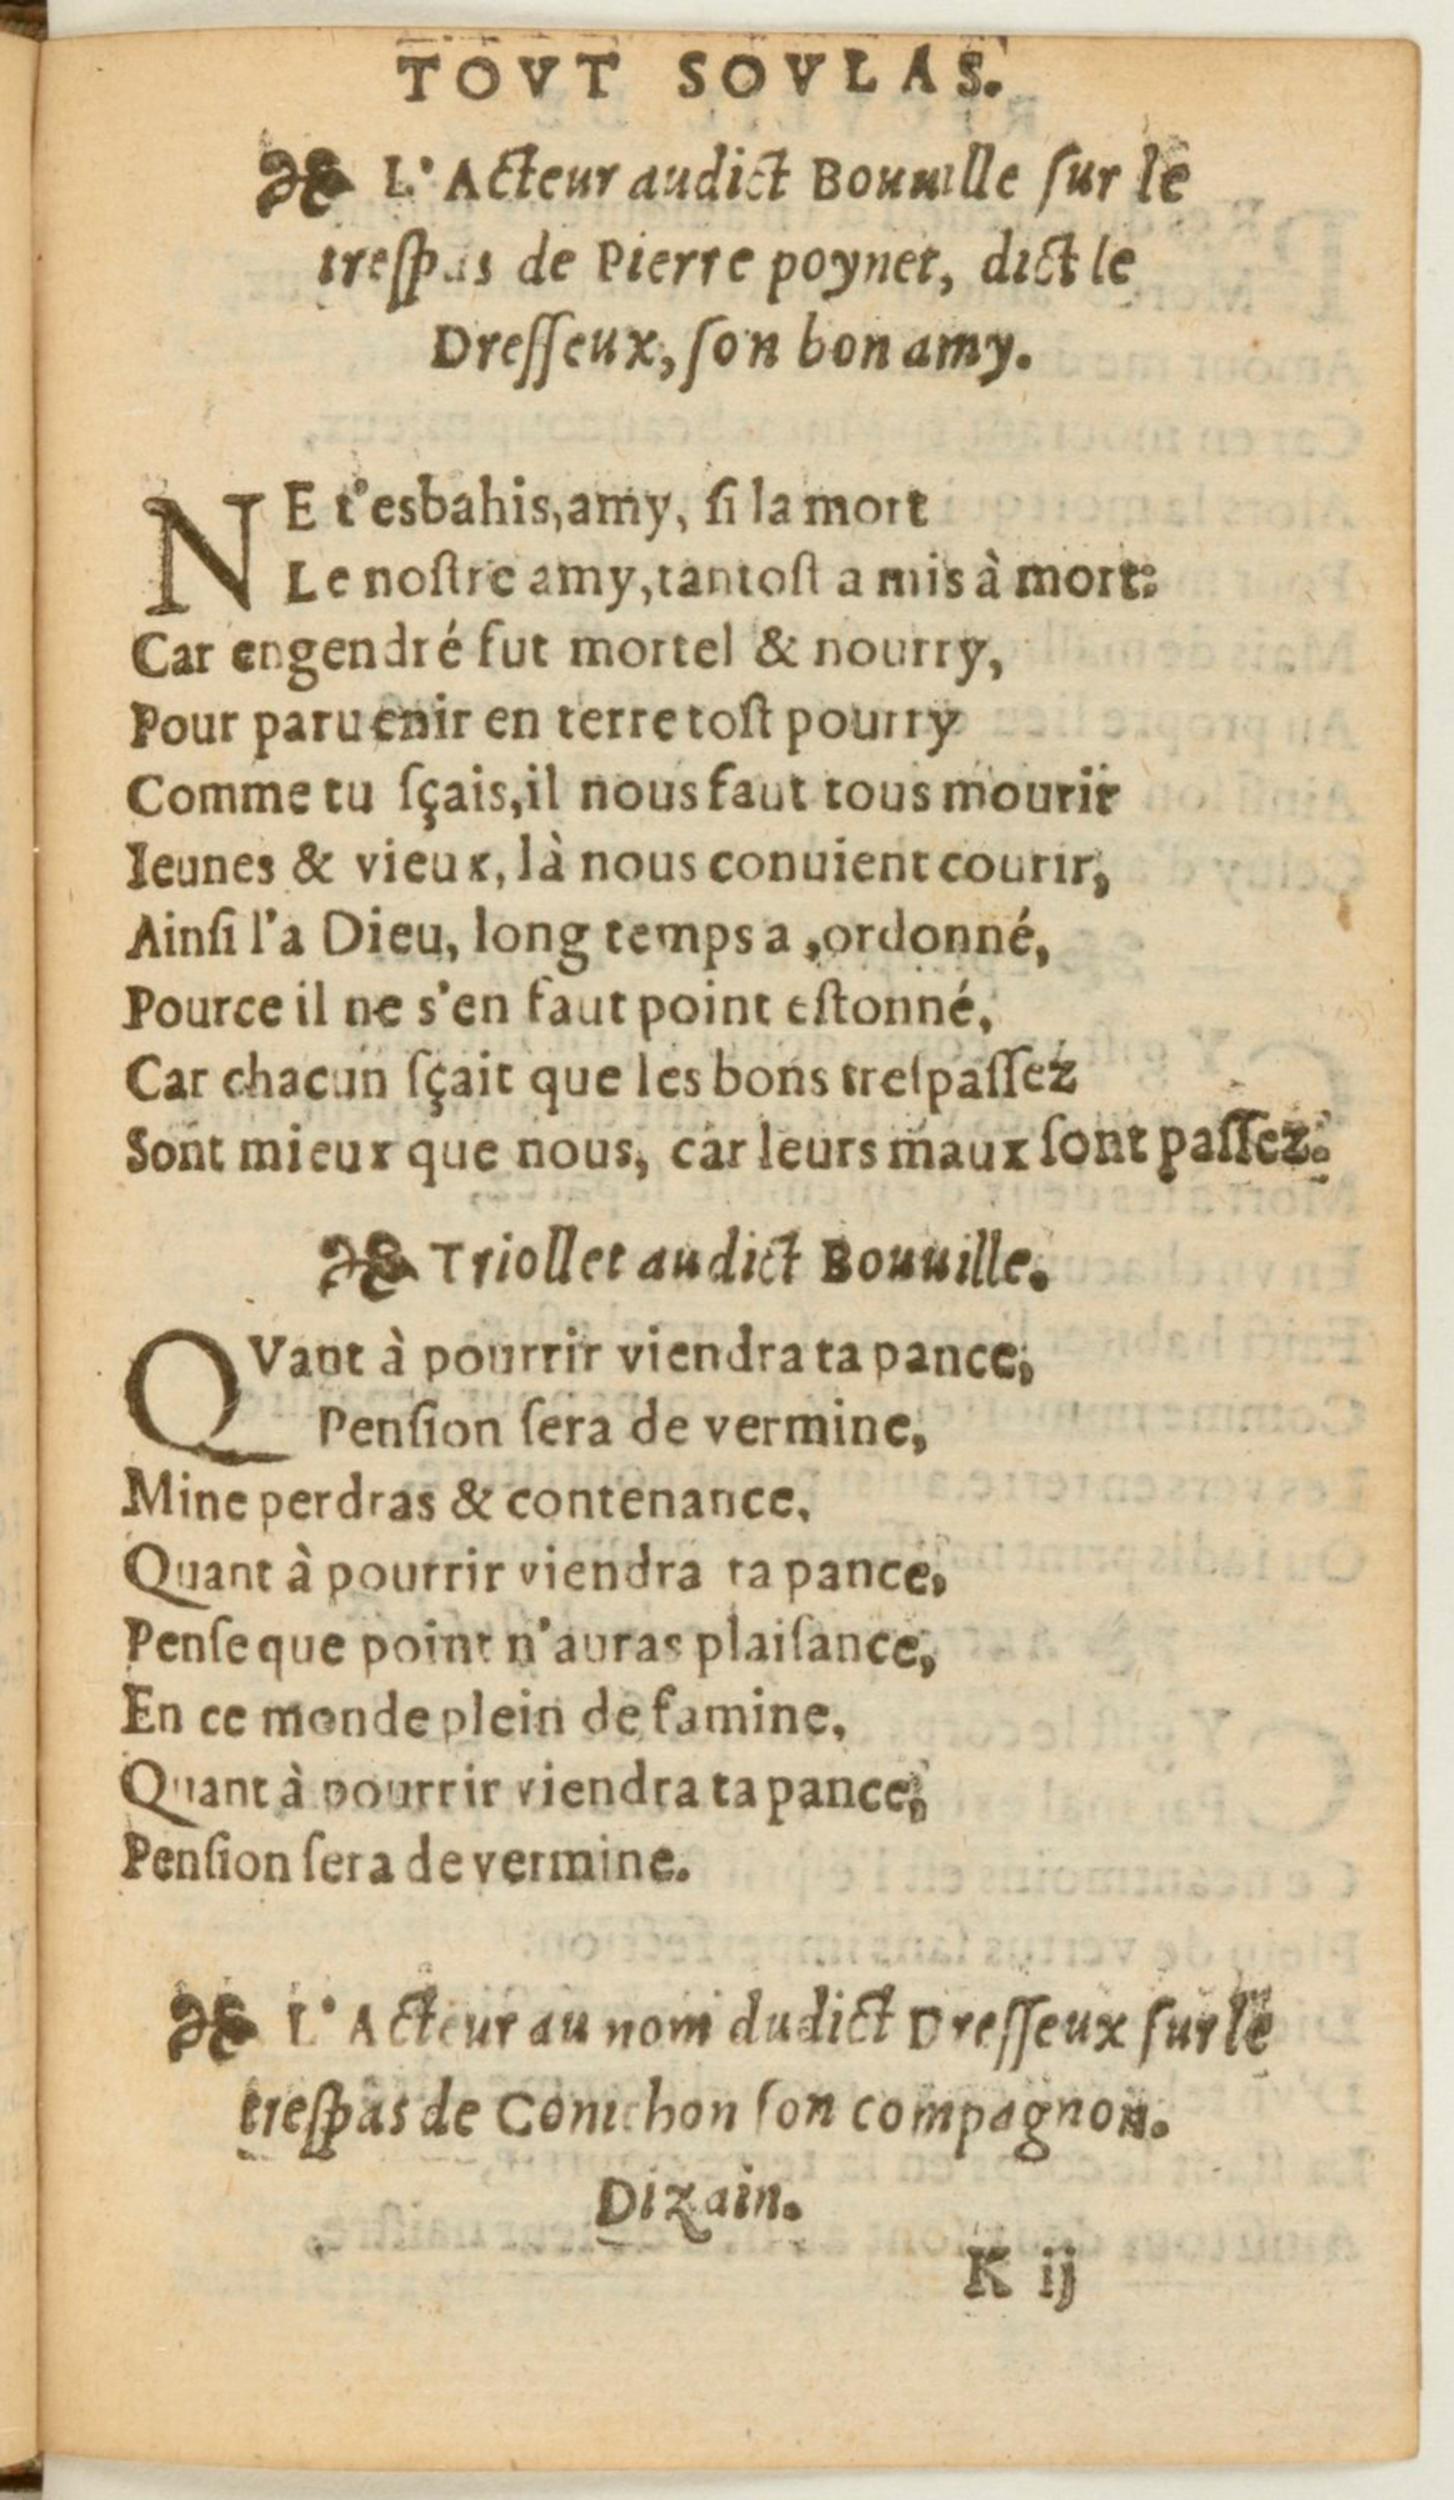 TOVT SOVLAS.
L'Acteur audict Bouuille ſur le
treſpas de Pierre poynet, dict le
Dreſſeux, ſon bon amy.
NE t'esbahis, amy, ſi la mort
Le noſtre amy, tantoſt a mis à mort:
Car engendré fut mortel & nourry,
Pour paruenir en terre toſt pourry
Comme tu ſçais, il nous faut tous mourir
Ieunes & vieux, là nous conuient courir,
Ainſi l'a Dieu, long temps a, ordonné,
Pource il ne s'en faut point eſtonné,
Car chacun ſçait que les bons treſpaſſez
Sont mieux que nous, car leurs maux ſont paſſez.
Triollet audict Bouuille.
QVant à pourrir viendra ta pance,
Penſion ſera de vermine,
Mine perdras & contenance,
Quant à pourrir viendra ta pance,
Penſe que point n'auras plaiſance,
En ce monde plein de famine,
Quant à pourrir viendra ta pance,
Penſion ſera de vermine.
L'Acteur au nom dudict Dreſſeux ſur le
treſpas de ſon compagnon.
Dizain.
K ij